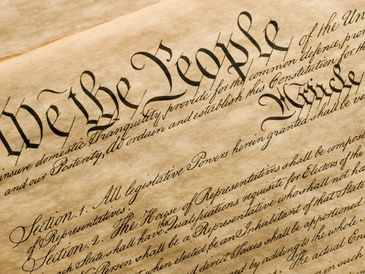 We the People of the Un
insure domestic Tranquility, provide for the common defence, pro
and our Posterity, do ordain and establish this Constitution for the
Article
Section. 1. All legislative Powers herein granted shall be ves
of Representatives.
Section. 2. The House of Representatives shall be compose
each State shall have the Qualifications requisite for Electors of the
No Person shall be a Representative who shall not ha
when elected, be an Inhabitant of that State
and direct Taxes shall be apportioned
by adding to the whole
The actual Enu